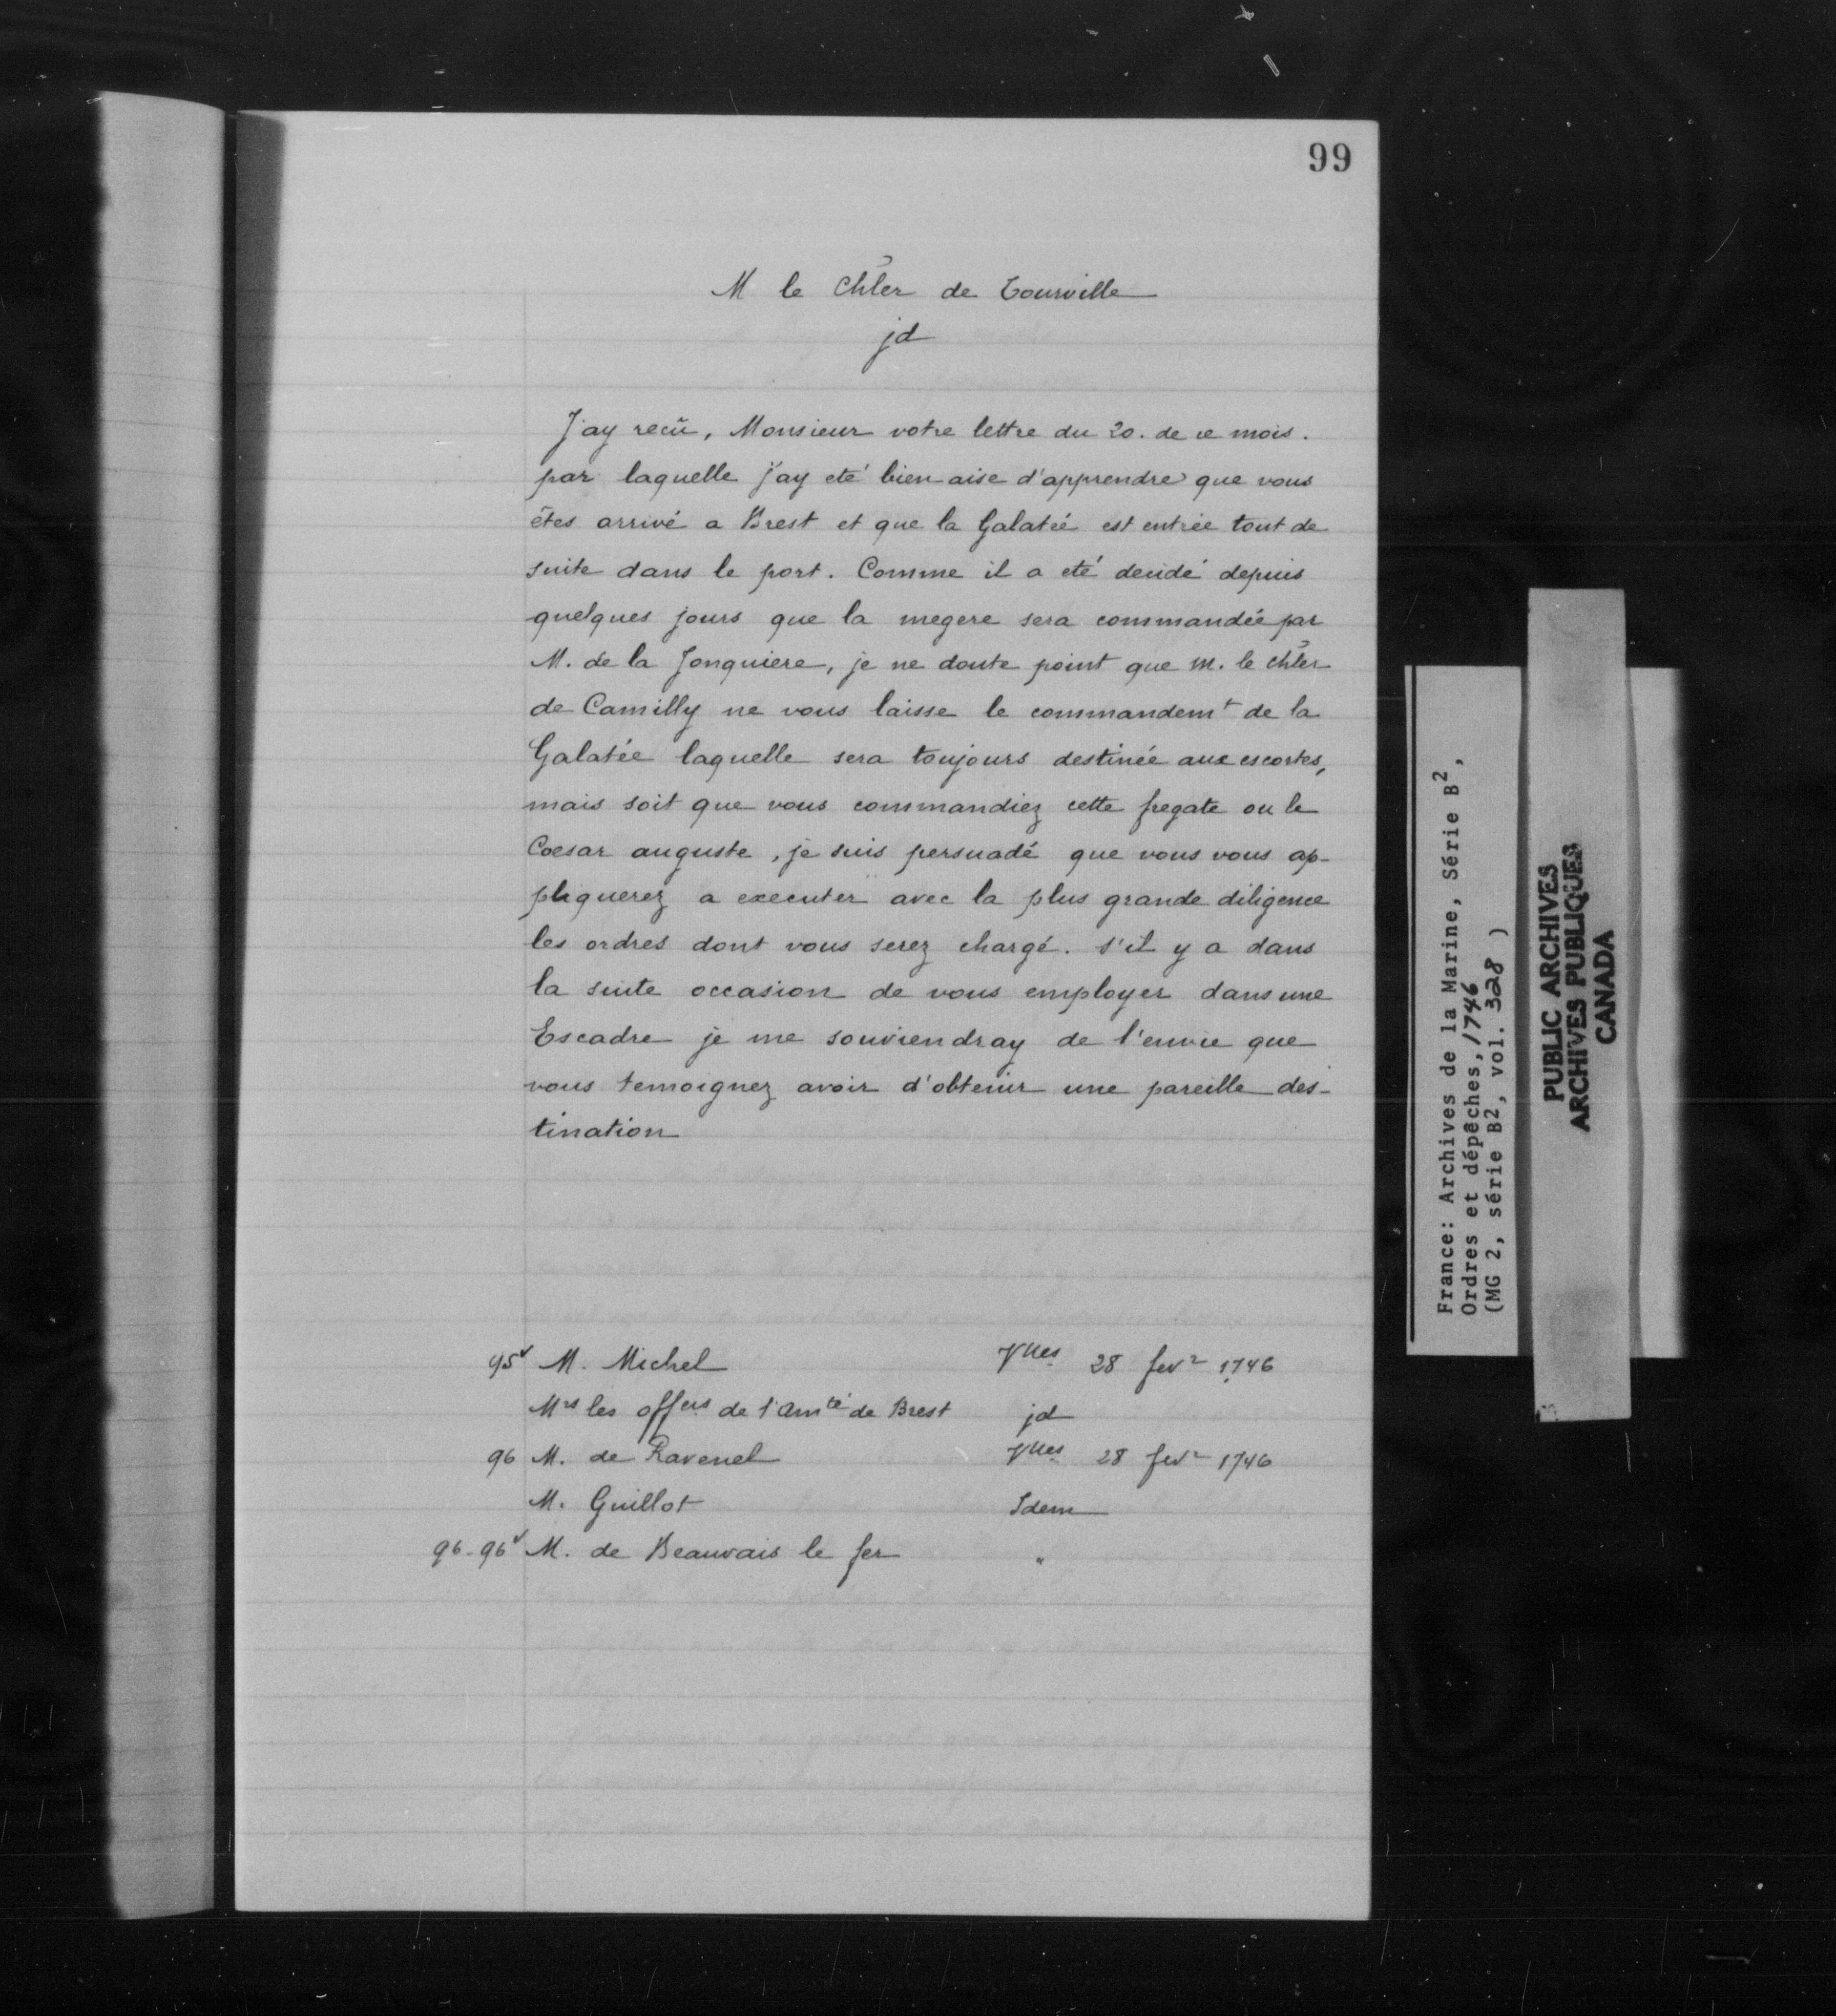 99
M le Chler de Tourville
jd
J'ay reçû, Monsieur votre lettre du 20. de ce mois.
par laquelle j'ay eté bien aise d'apprendre que vous
êtes arrivé a Brest et que la Galatée est entrée tout de
suite dans le port. Comme il a eté decidé depuis
quelques jours que la megere sera commandée par
M. de la Jonquiere, je ne doute point que m. le chler
de Camilly ne vous laisse le commandemt de la
Galatée laquelle sera toujours destinée aux escortes,
mais soit que vous commandiez cette fregate ou le
Coesar auguste, je suis persuadé que vous vous ap-
pliquerez a executer avec la plus grande diligence
les ordres dont vous serez chargé. s'il y a dans
la suite occasion de vous employer dans une
Escadre je me souviendray de l'envie que
vous temoignez avoir d'obtenir une pareille des-
tination
95v M. Michel Vlles 28 fevr 1746
Mrs les offers de l'amté de Brest jd
96 M. de Ravenel Vlles 28 fevr 1746
M. Guillot Idem
96-96v M. de Beauvais le fer "
France: Archives de la Marine, Série B2,
Ordres et dépêches, 1746
(MG 2, série B2, vol. 328 )
PUBLIC ARCHIVES
ARCHIVES PUBLIQUES
CANADA